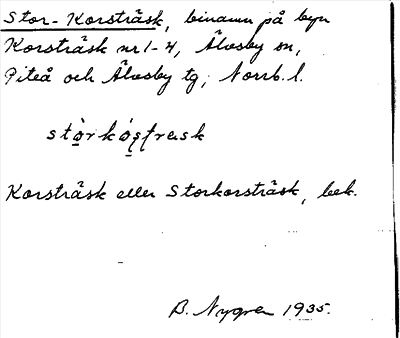 Stor-Korsträsk, binamn på byn
Korsträsk nr 1-4, Älvsby sn,
Piteå och Älvsby tg, Norrb. l.
Korsträsk eller Storkorsträsk, bek.
B. Nygren 1935.